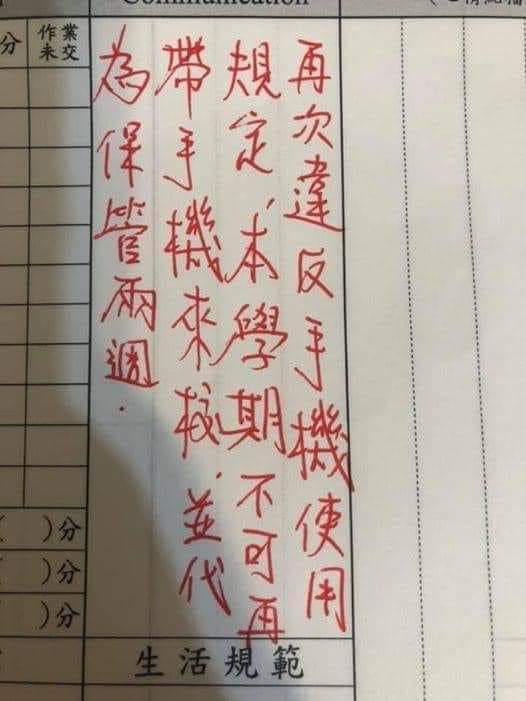 Communication
分
作業
未交
再次違反手機使用
規定，本學期不可再
帶手機來校，並代
為保管兩週．
( )分
( )分
( )分
生活規範